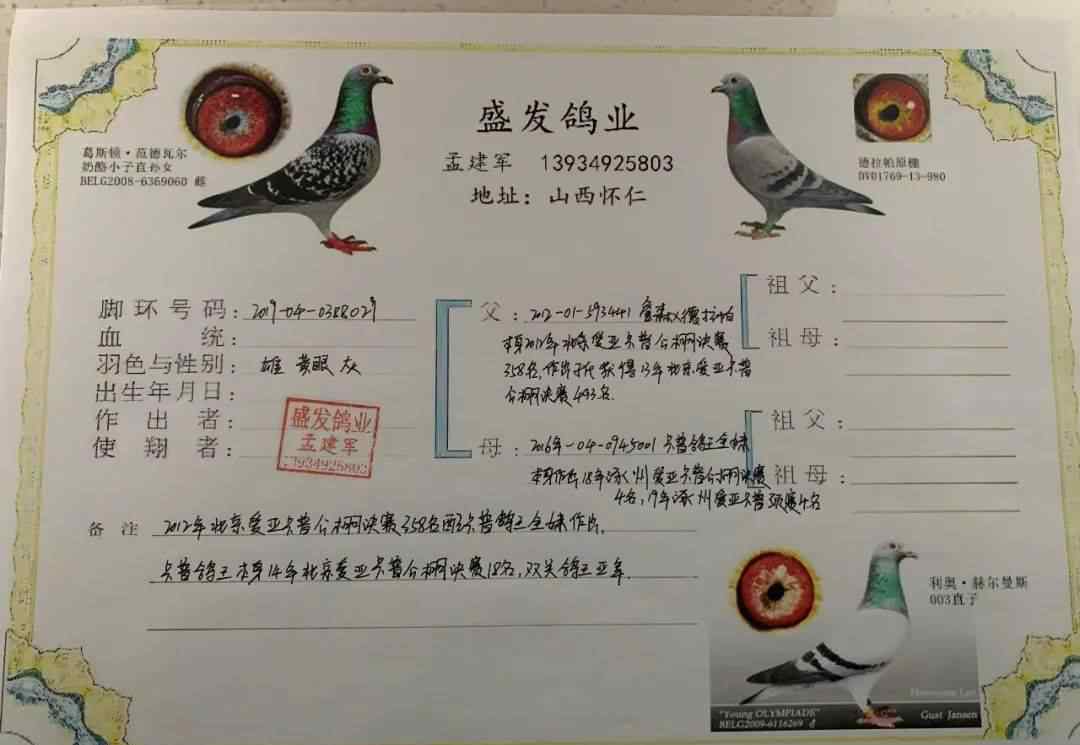 盛发鸽业
孟建军 13934925803
地址：山西怀仁
葛斯顿·范德瓦尔
奶酪小子直孙女
BELG2008-6369060 雌
德拉帕原棚
DV01769-13-980
脚环号码：2019-04-0388029
血统：
羽色与性别：雄 黄眼 灰
出生年月日：
作出者：
使翔者：
盛发鸽业
孟建军
13934925803
父：2012-01-5934441 德拉帕
本身2012年北京爱亚卡普公棚决赛
358名,作出子代获得13年北京爱亚卡普
公棚决赛493名.
母：2016年-04-0945001 卡普鸽王全妹
本身作出18年涿州爱亚卡普公棚决赛
4名,19年涿州爱亚卡普预赛4名
祖父：
祖母：
祖父：
祖母：
备注 2012年北京爱亚卡普公棚决赛358名配卡普鸽王全妹作出.
卡普鸽王本身14年北京爱亚卡普公棚决赛18名,双关鸽王亚军.
利奥·赫尔曼斯
003直子
Gust Jansen
"Young OLYMPIADE"
BELG2009-6116269 ♂